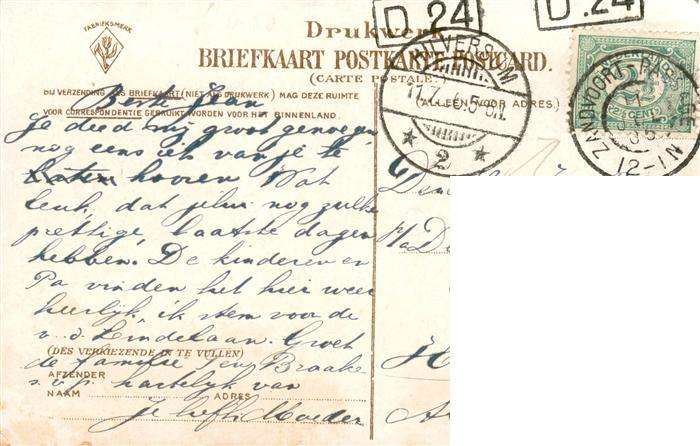 FABRIEKSMERK
Drukwerk
D.24
D.24
BRIEFKAART POSTKARTE POSTCARD.
(CARTE POSTALE)
HILVERSUM
2
ZANDVOORT
12-1N
CENT
BIJ VERZENDING ALS BRIEFKAART (NIET ALS DRUKWERK) MAG DEZE RUIMTE
(ALLEEN VOOR ADRES.)
VOOR CORRESPONDENTIE GEBRUIKT WORDEN VOOR HET BINNENLAND.
Beste Jean
Je deed mij groot genoegen
nog eens iets van je te
laten hooren Wat
leuk, dat jelui nog zulke
prettige laatste dagen
hebben. De kinderen en
Pa vinden het hier weer
heerlijk, ik stem voor de
v. d. Lindelaan. Groet
(DES VERKIEZENDE IN TE VULLEN)
de familie Ten Braake
AFZENDER
s.v.p. hartelijk van
NAAM ADRES
Je liefh. Moeder